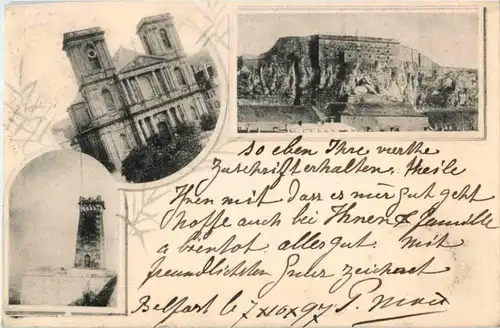 so eben Ihre werthe
Zuschrift erhalten, theile
Ihnen mit dass es mir gut geht
hoffe auch bei Ihnen & familie
a bientot alles gut. mit
freundlichsten zeichnet
Belfort le 7 XI 97 P.